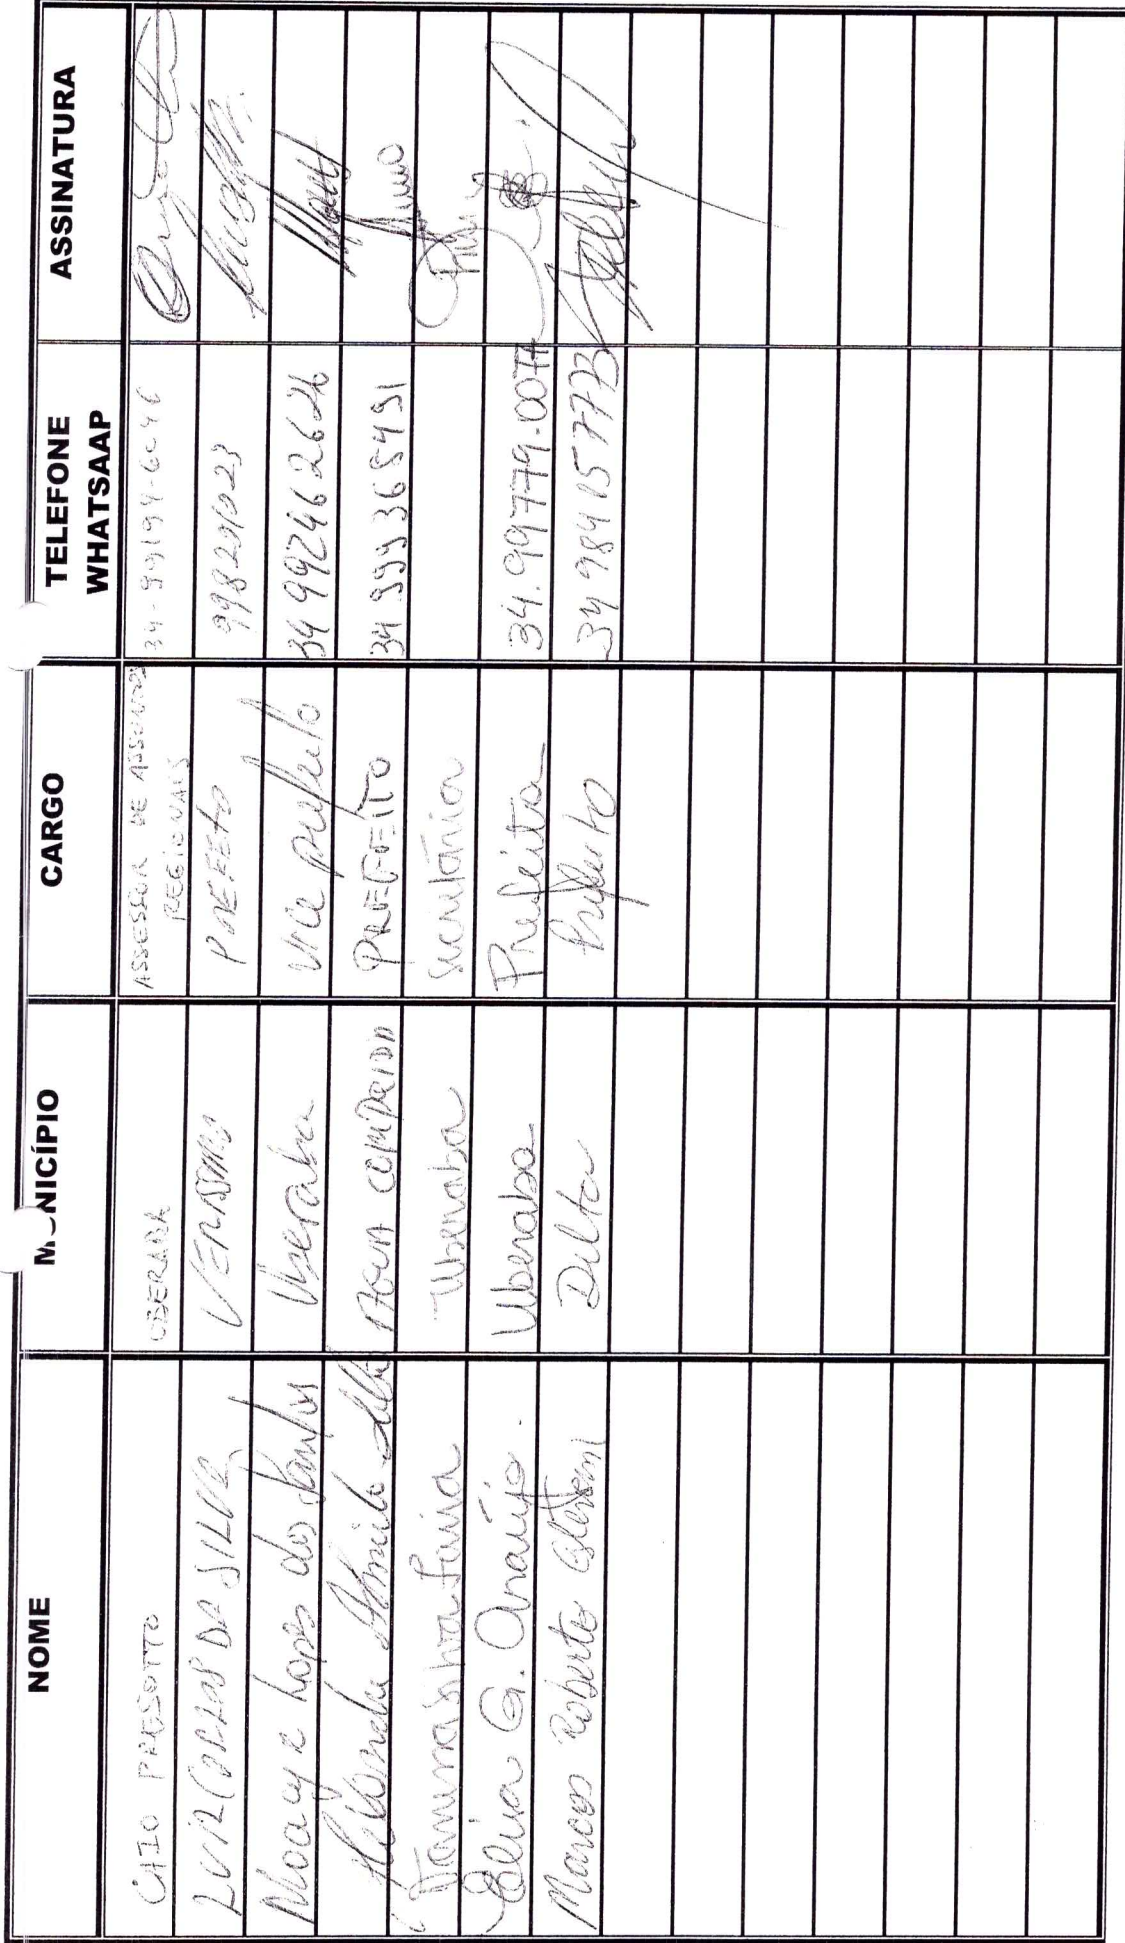 NOME MUNICÍPIO CARGO TELEFONE WHATSAAP ASSINATURA
CAIO PRESOTTO UBERABA ASSESSOR DE ASSUNTOS REGIONAIS 34-99194-6046
LUIZ CARLOS DA SILVA VERISSIMO PREFEITO 998291023
Moacyr Lopes dos Santos Uberaba Vice prefeito 34 992462626
Alexandre Almeida PREFEITO 34 999365491
Silva Faria Uberaba secretária
Elisa G. Araújo. Uberaba Prefeita 34.99779.0077
Marcos Roberto Estevam Delta Prefeito 34 984157773